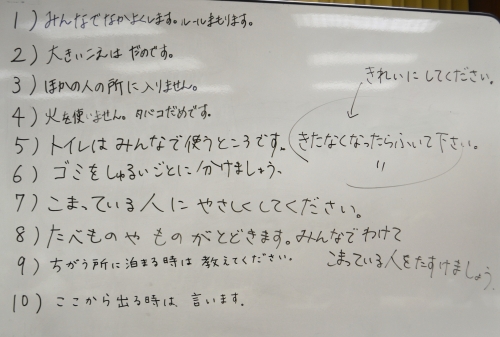 1) みんなでなかよくします。ルールまもります。
2) 大きいこえは だめです。
3) ほかの人の所に入りません。
4) 火を使いません。タバコだめです。
5) トイレはみんなで使うところです。
きれいにしてください。
きたなくなったらふいて下さい。
〃
6) ゴミをしゅるいごとに分けましょう、
7) こまっている人に やさしくしてください。
8) たべものや ものがとどきます。みんなでわけて
こまっている人をたすけましょう。
9) ちがう所に泊まる時は 教えてください。
10) ここから出る時は 言います。